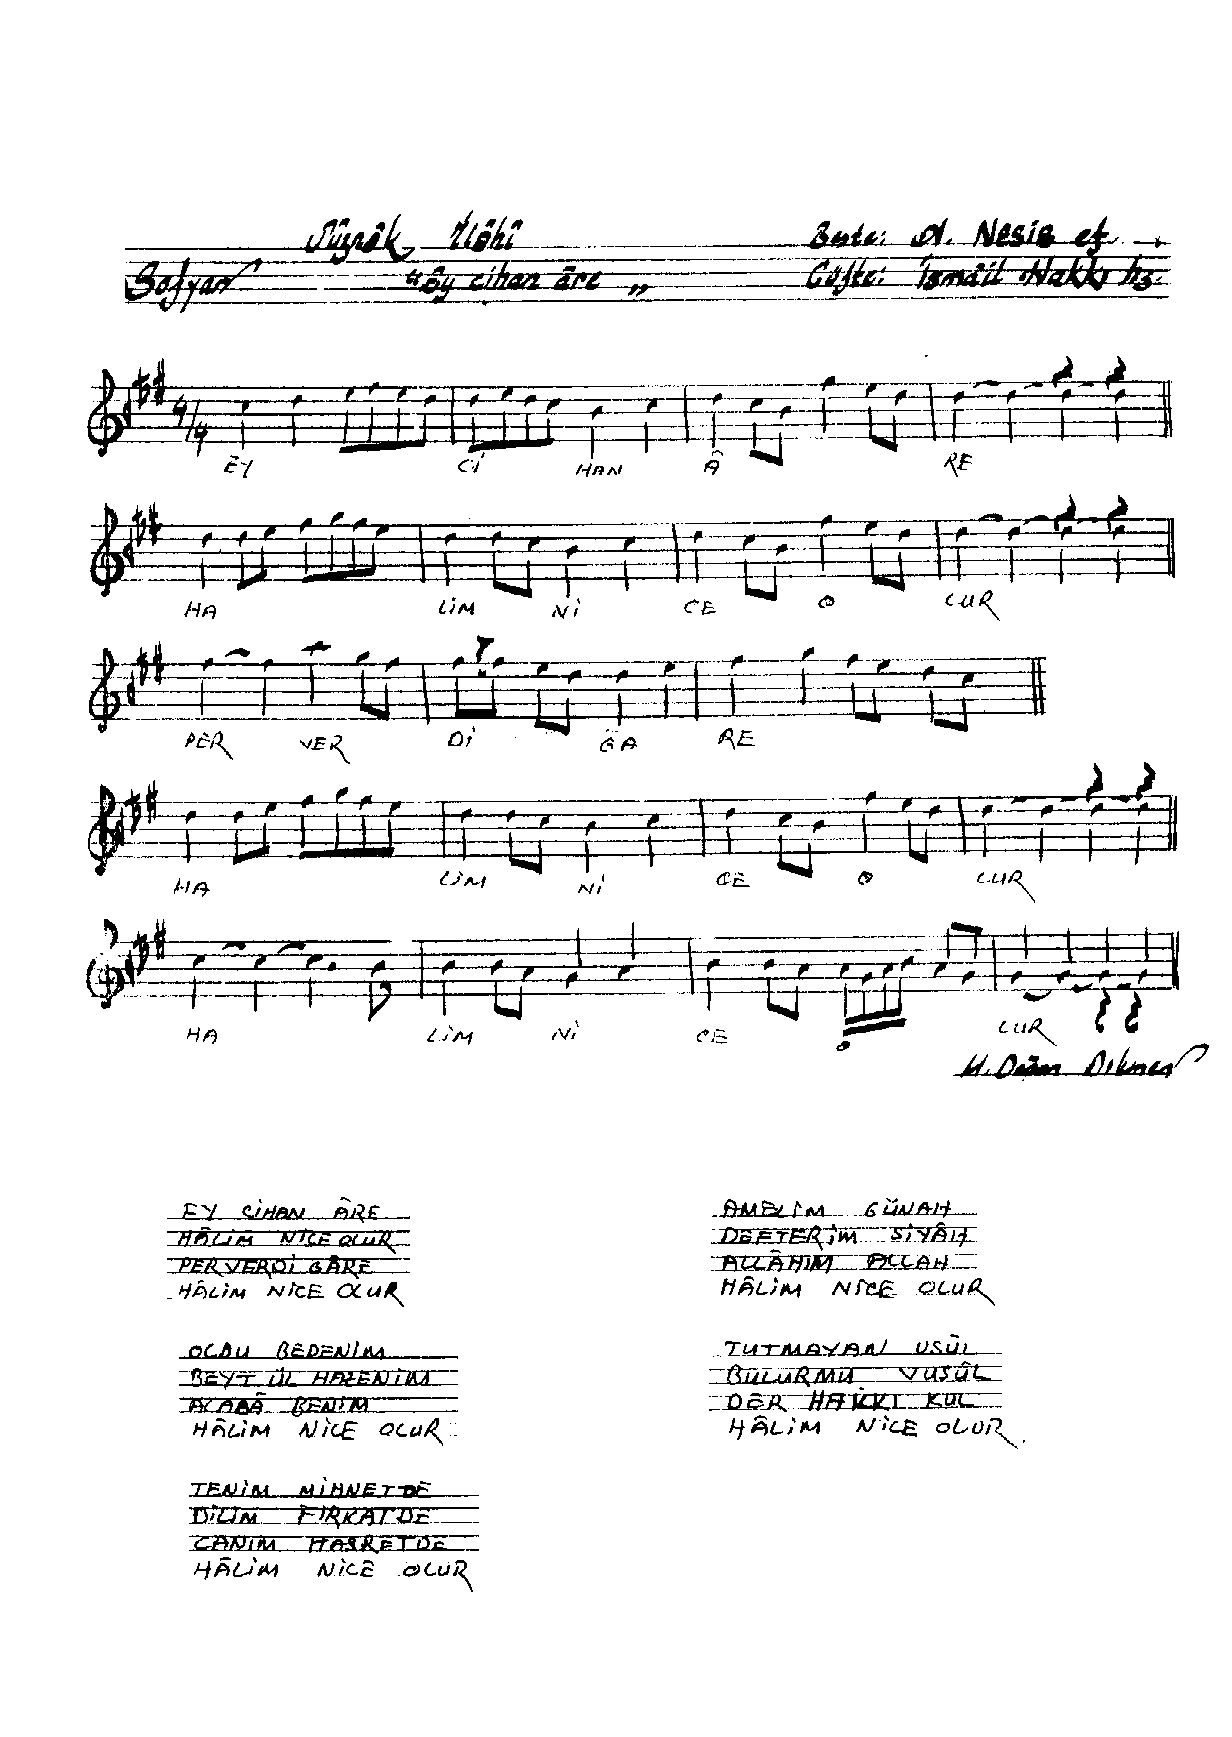 Sûznâk İlâhî
Beste: A. Nesib ef.
Sofyan
"Ey cihan âre„
Güfte: İsmâil Hakkı hz.
4/4
EY Cİ HAN Â RE
HA LİM Nİ CE O LUR
PER VER Dİ GA RE
HA LİM Nİ CE O LUR
HA LİM Nİ CE O LUR
EY CİHAN ÂRE
HÂLİM NİCE OLUR
PERVERDİGÂRE
HÂLİM NİCE OLUR
OLDU BEDENİM
BEYT ÜL HAZENİM
ACABÂ BENİM
HÂLİM NİCE OLUR
TENİM MİHNETDE
DİLİM FIRKATDE
CANIM HASRETDE
HÂLİM NİCE OLUR
AMELİM GÜNAH
DEFTERİM SİYÂH
ALLÂHIM ALLAH
HÂLİM NİCE OLUR
TUTMAYAN USÛL
BULURMU VUSÛL
DER HAKKI KUL
HÂLİM NİCE OLUR